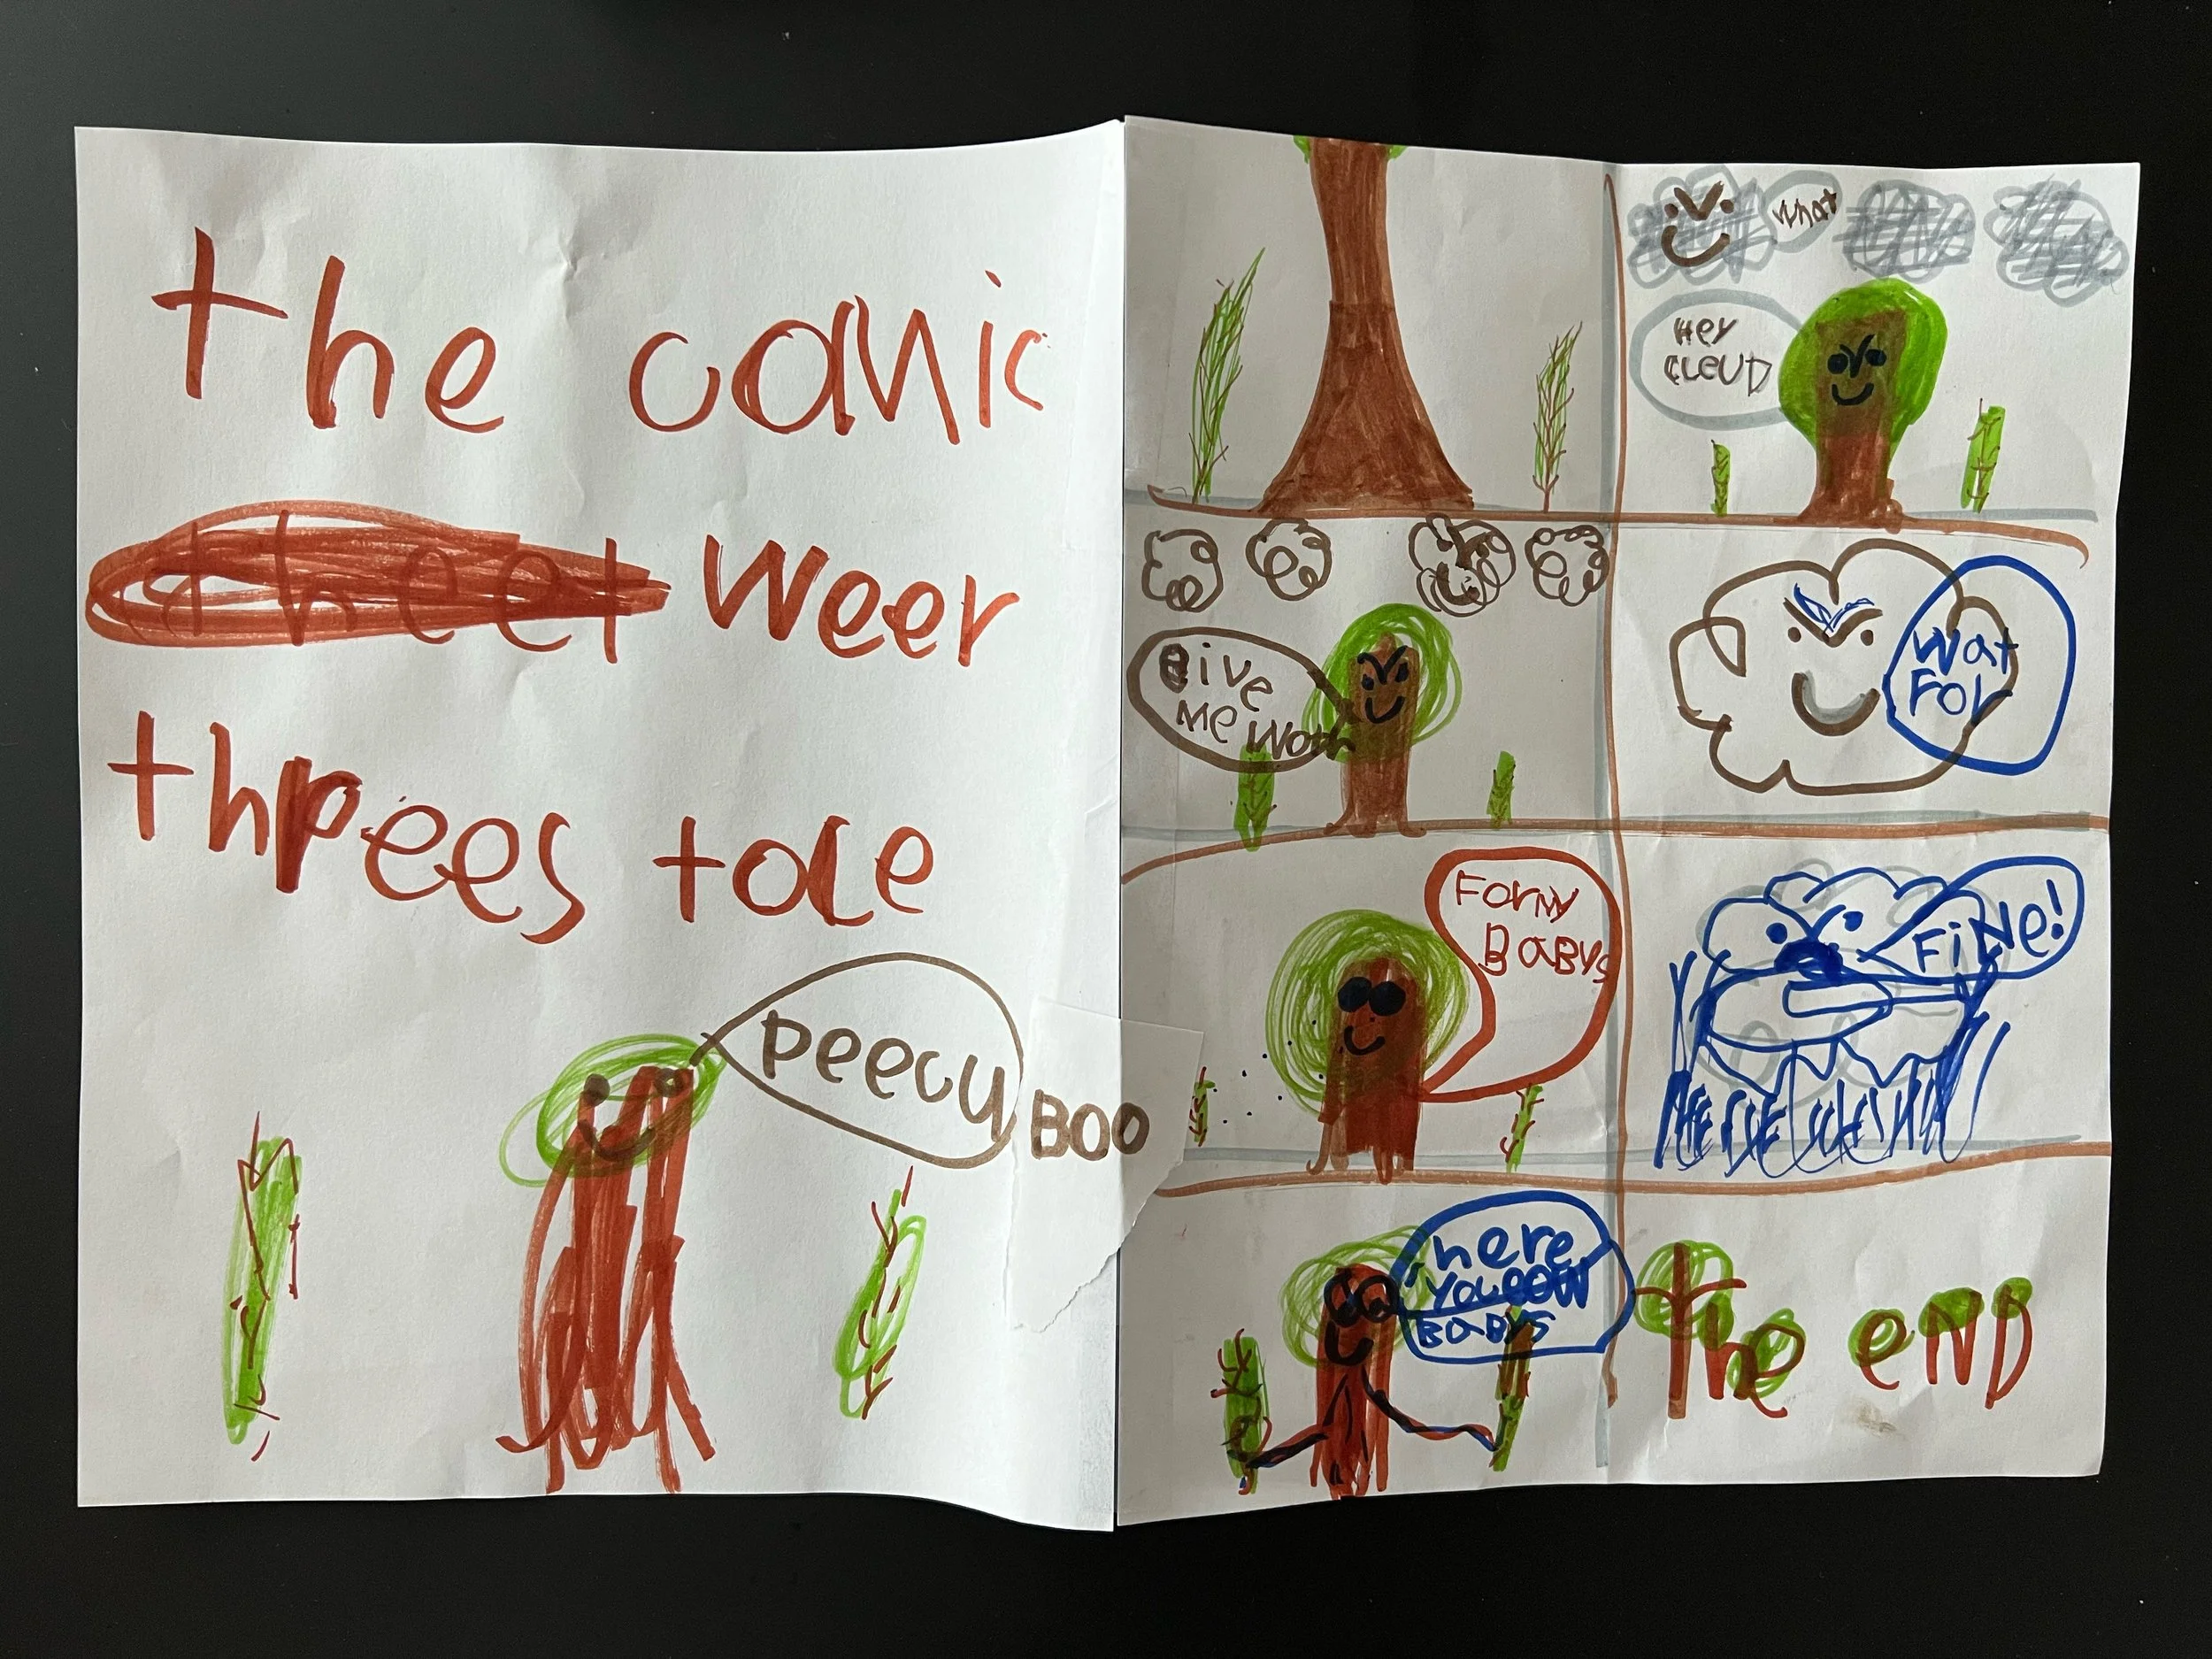 the comic
theet weer
threes toce
peecy
BOO
what
HEY
CLEUD
Give
Me Wotr
Wat
For
Formy
BABYs
FiNe!
here
you
BABYS
the eND